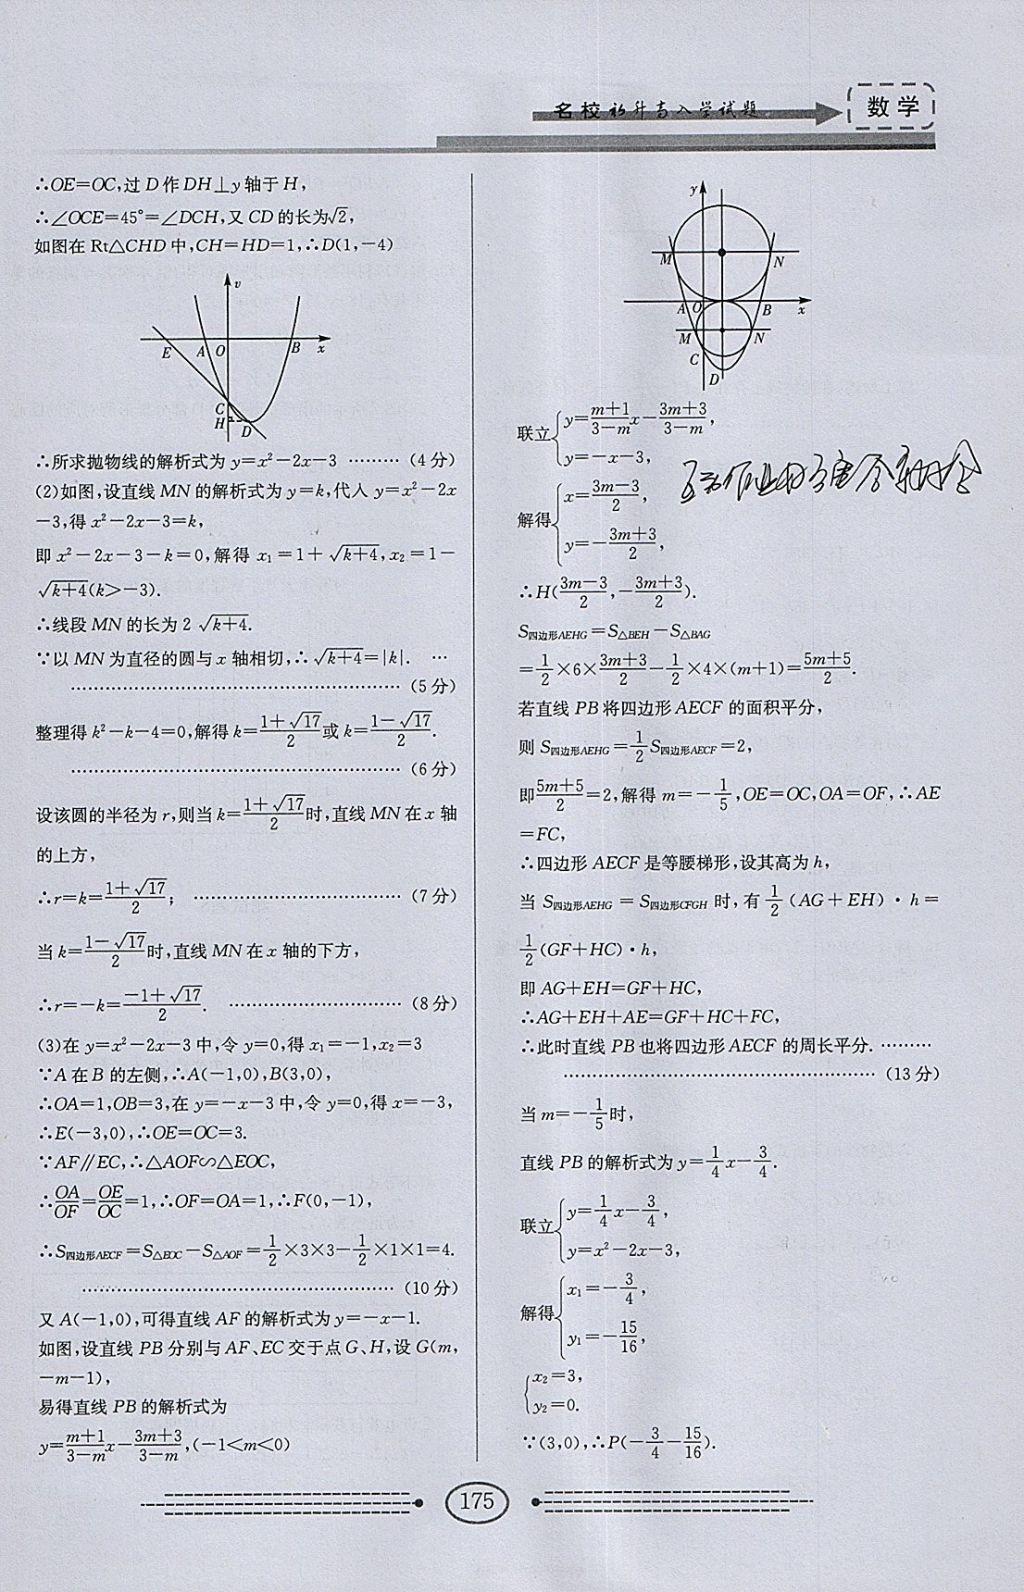 名校初升高入学试题
数学
∴OE=OC,过D作DH⊥y轴于H,
∴∠OCE=45°=∠DCH,又CD的长为√2,
如图在Rt△CHD中,CH=HD=1,∴D(1,-4)
v
E A O B x
C
H D
∴所求抛物线的解析式为y=x²-2x-3 ……… (4分)
(2)如图,设直线MN的解析式为y=k,代人y=x²-2x
-3,得x²-2x-3=k,
即x²-2x-3-k=0,解得x₁=1+√(k+4),x₂=1-
√(k+4)(k>-3).
∴线段MN的长为2√(k+4).
∵以MN为直径的圆与x轴相切,∴√(k+4)=|k|. …
……………………………………… (5分)
整理得k²-k-4=0,解得k=(1+√17)/2或k=(1-√17)/2.
……………………………………… (6分)
设该圆的半径为r,则当k=(1+√17)/2时,直线MN在x轴
的上方,
∴r=k=(1+√17)/2; ……………………… (7分)
当k=(1-√17)/2时,直线MN在x轴的下方,
∴r=-k=(-1+√17)/2. ………………… (8分)
(3)在y=x²-2x-3中,令y=0,得x₁=-1,x₂=3
∵A在B的左侧,∴A(-1,0),B(3,0),
∴OA=1,OB=3,在y=-x-3中,令y=0,得x=-3,
∴E(-3,0),∴OE=OC=3.
∵AF∥EC,∴△AOF∽△EOC,
∴OA/OF=OE/OC=1,∴OF=OA=1,∴F(0,-1),
∴S四边形AECF=S△EOC-S△AOF=1/2×3×3-1/2×1×1=4.
…………………………………… (10分)
又A(-1,0),可得直线AF的解析式为y=-x-1.
如图,设直线PB分别与AF、EC交于点G、H,设G(m,
-m-1),
易得直线PB的解析式为
y=(m+1)/(3-m)x-(3m+3)/(3-m),(-1<m<0)
y
M N
A O B x
M N
C
D
联立{y=(m+1)/(3-m)x-(3m+3)/(3-m),
y=-x-3,
解得{x=(3m-3)/2,
y=-(3m+3)/2,
∴H((3m-3)/2,-(3m+3)/2).
S四边形AEHG=S△BEH-S△BAG
=1/2×6×(3m+3)/2-1/2×4×(m+1)=(5m+5)/2.
若直线PB将四边形AECF的面积平分,
则S四边形AEHG=1/2S四边形AECF=2,
即(5m+5)/2=2,解得m=-1/5,OE=OC,OA=OF,∴AE
=FC,
∴四边形AECF是等腰梯形,设其高为h,
当S四边形AEHG=S四边形CFGH时,有1/2(AG+EH)·h=
1/2(GF+HC)·h,
即AG+EH=GF+HC,
∴AG+EH+AE=GF+HC+FC,
∴此时直线PB也将四边形AECF的周长平分. ………
…………………………………… (13分)
当m=-1/5时,
直线PB的解析式为y=1/4x-3/4.
联立{y=1/4x-3/4,
y=x²-2x-3,
解得{x₁=-3/4,
y₁=-15/16,
{x₂=3,
y₂=0.
∵(3,0),∴P(-3/4-15/16).
175